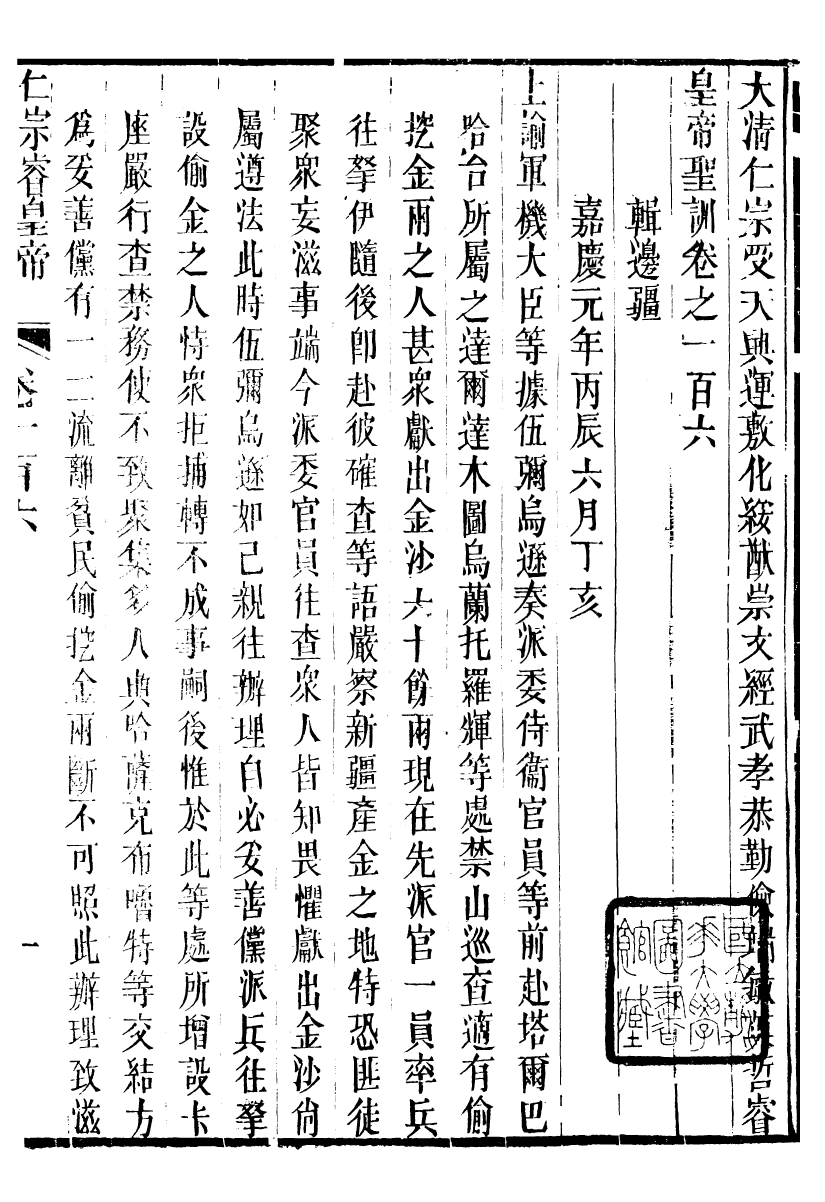 大清仁宗受天興運敷化綏猷崇文經武孝恭勤儉端敏英哲睿
皇帝聖訓卷之一百六
輯邊疆
嘉慶元年丙辰六月丁亥
上諭軍機大臣等據伍彌烏遜奏派委侍衞官員等前赴塔爾巴
哈台所屬之達爾達木圖烏蘭托羅輝等處禁山巡查適有偷
挖金兩之人甚衆獻出金沙六十餘兩現在先派官一員率兵
往拏伊隨後卽赴彼確查等語嚴察新疆產金之地特恐匪徒
聚衆妄滋事端今派委官員往查衆人皆知畏懼獻出金沙尙
屬遵法此時伍彌烏遜如已親往辦理自必妥善儻派兵往拏
設偷金之人恃衆拒捕轉不成事嗣後惟於此等處所增設卡
座嚴行查禁務使不致聚集多人與哈薩克布嚕特等交結方
爲妥善儻有一二流離貧民偷挖金兩斷不可照此辦理致滋
仁宗睿皇帝 卷一百六 一
國立東
北大學
圖書
館藏